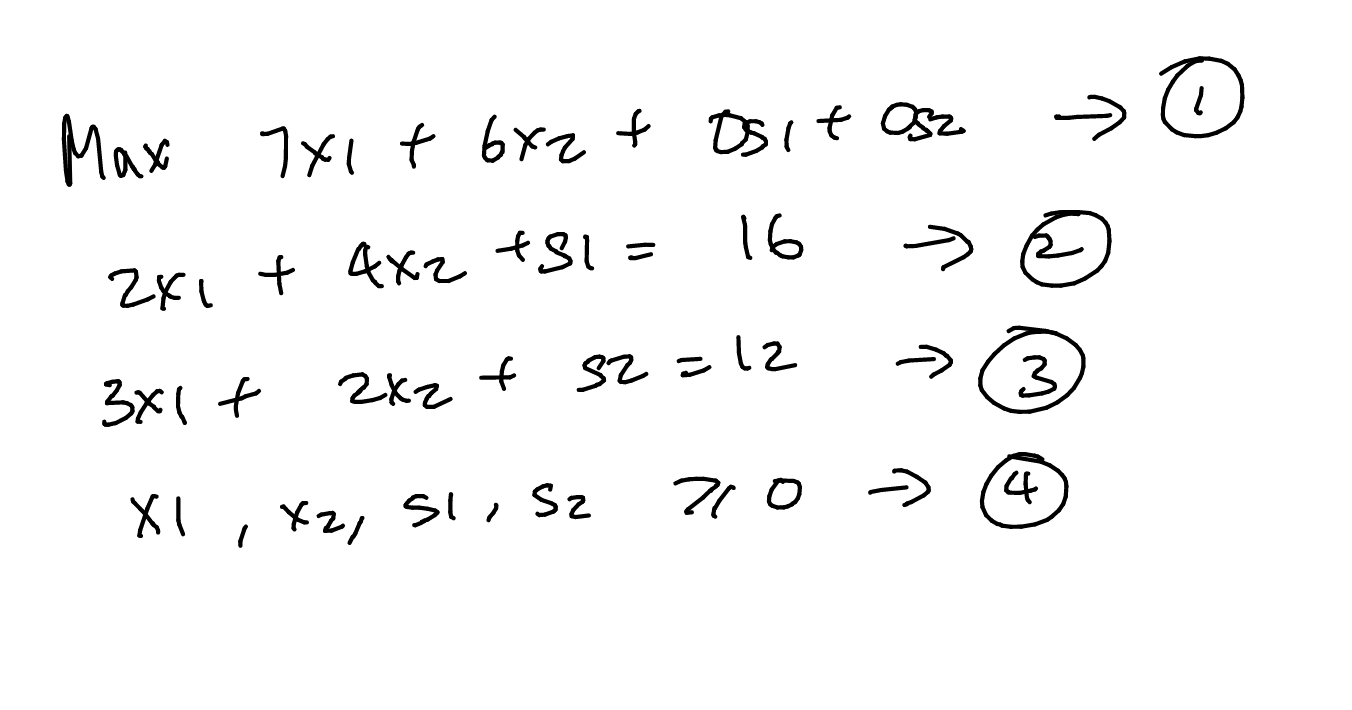 Max 7x1 + 6x2 + 0s1 + 0s2 → ①
2x1 + 4x2 + s1 = 16 → ②
3x1 + 2x2 + s2 = 12 → ③
x1, x2, s1, s2 ≥ 0 → ④